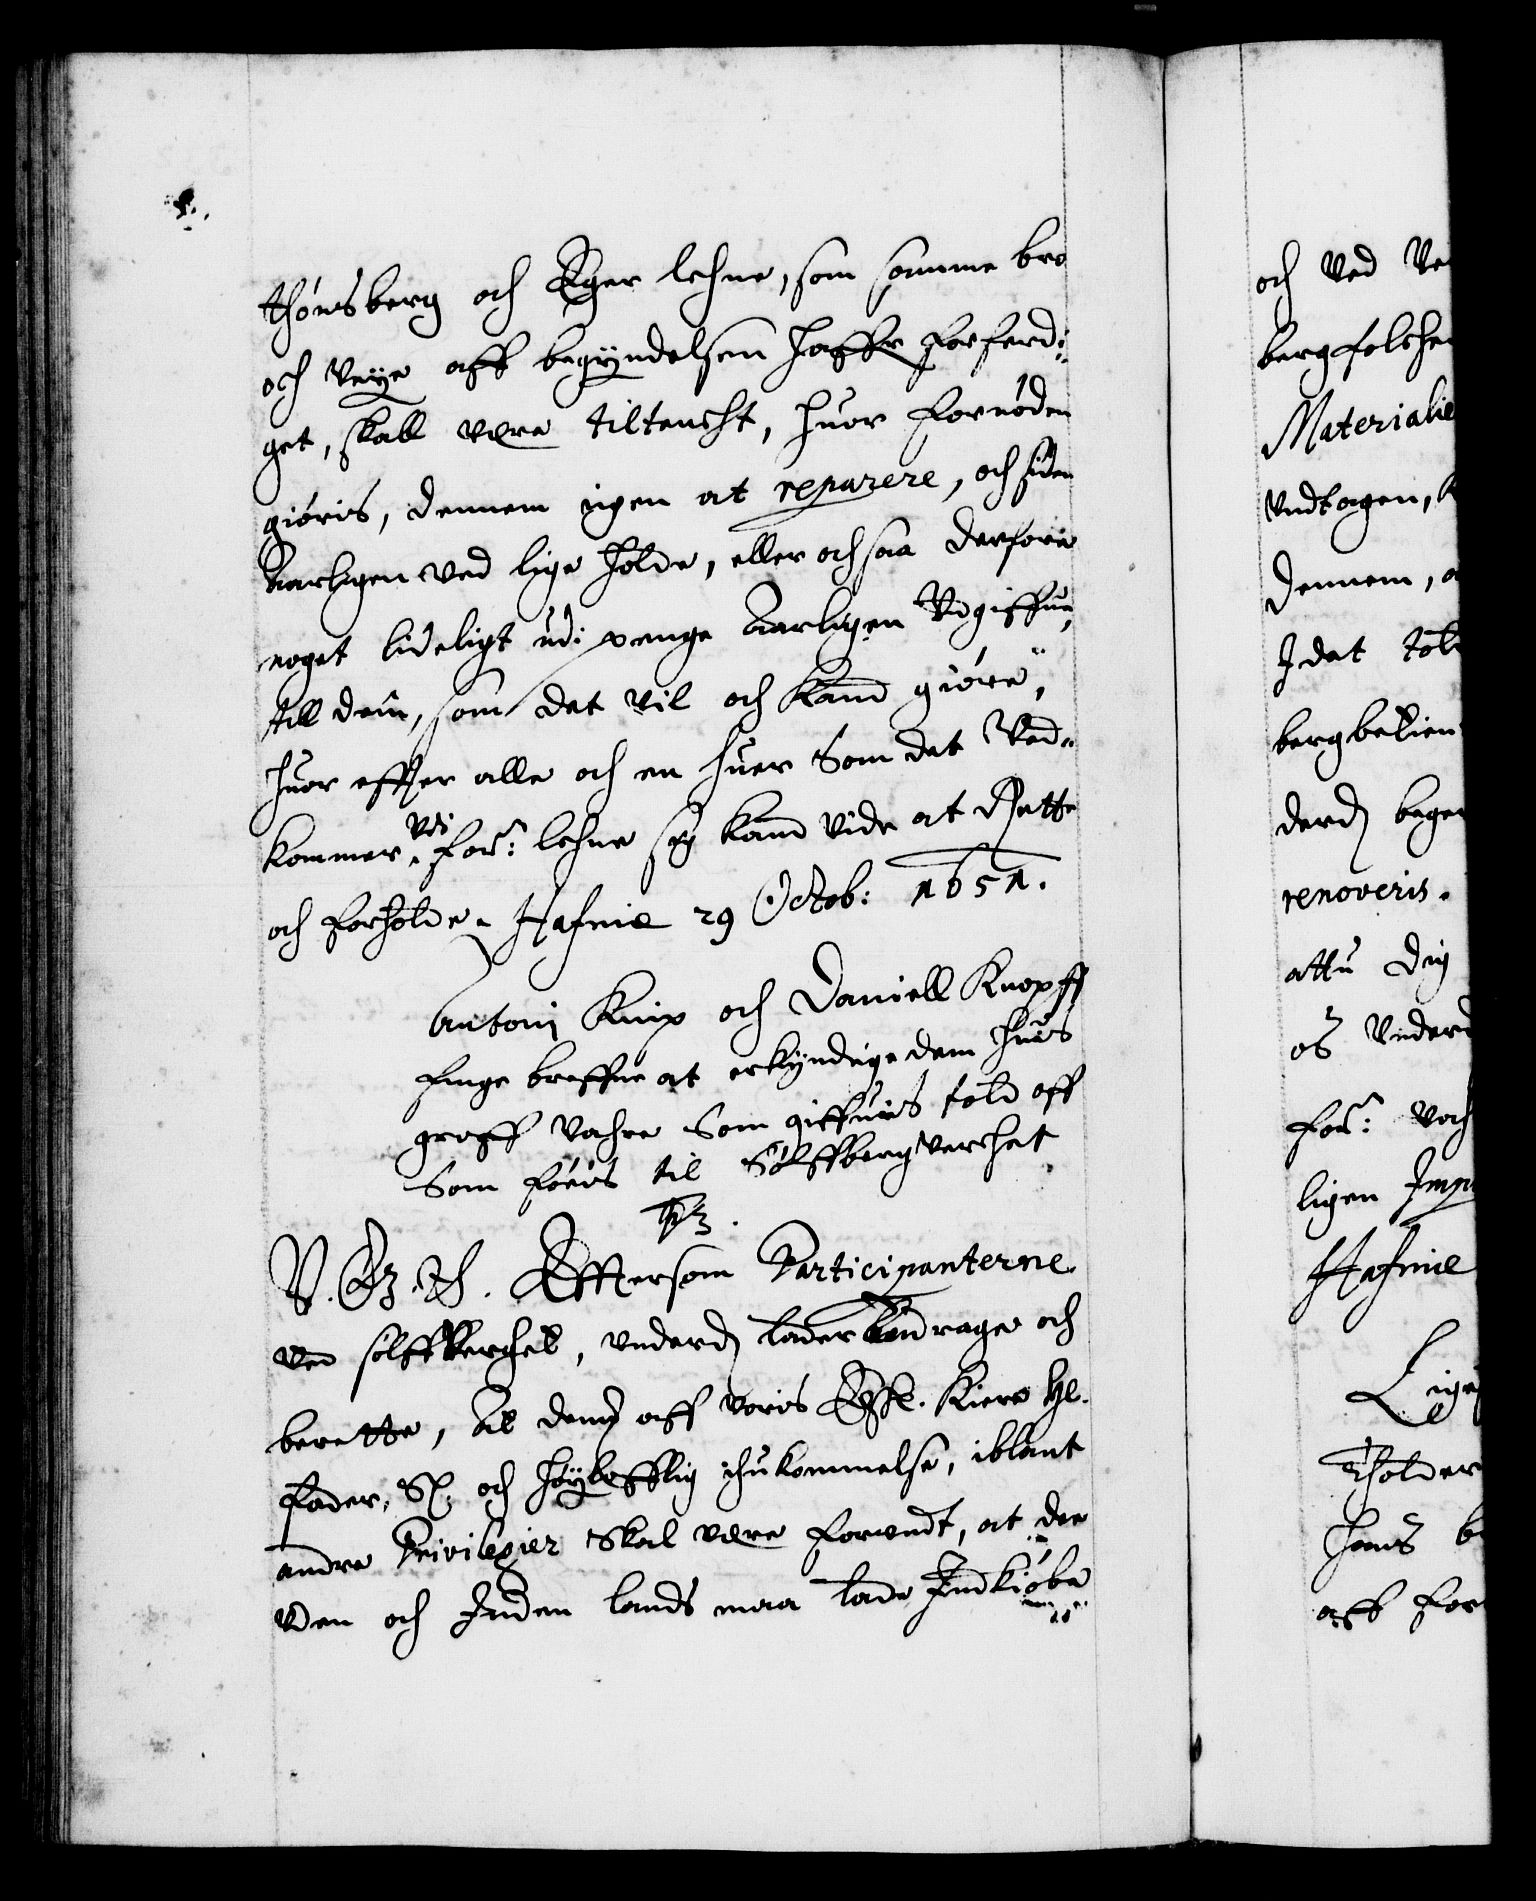 thønsberg och Eger lehne, som samme bro
och veye aff begyndelsen haffr forferdi¬
get, skall vere tiltencht, huor fornøden
giøris, dennem igen at reparere, och siden
Aarligen ved lige holde, eller och saa derfore
noget lideligt udi penge Aarligen Vdgiffue,
till dem, som det vil och kand giøre,
huor effter alle och en huer Som det Ved¬
kommer Vdi for: lehne sig kand vide at Rette
och forholde. Hafniæ 29 Octob: 1651.
Antoni Knip och Daniell Knopff
finge breffue at erkyndige dem huis
groff vahre Som giffuis told aff
Som føris til Sølffbergverchet
V. G. T. Efftersom Participanterne
ved sølffVerchet, underd lader andrage och
berette, At dem aff voris Elsk. Kiere Hl.
fader, Sl. och Høylofflig ihukommelse, iblant
andre Privilegier Skal vere forundt, at de
uden och Inden lands maa lade Indkiøbe
och Ved
bergfolche
Materialie
Vndtagen,
dennem,
I det tol
bergbetien
derd begen
renoveris.
attu dig
os Underd
for:
ligen
Hafniæ
Lige
Tholder
hans
aff for